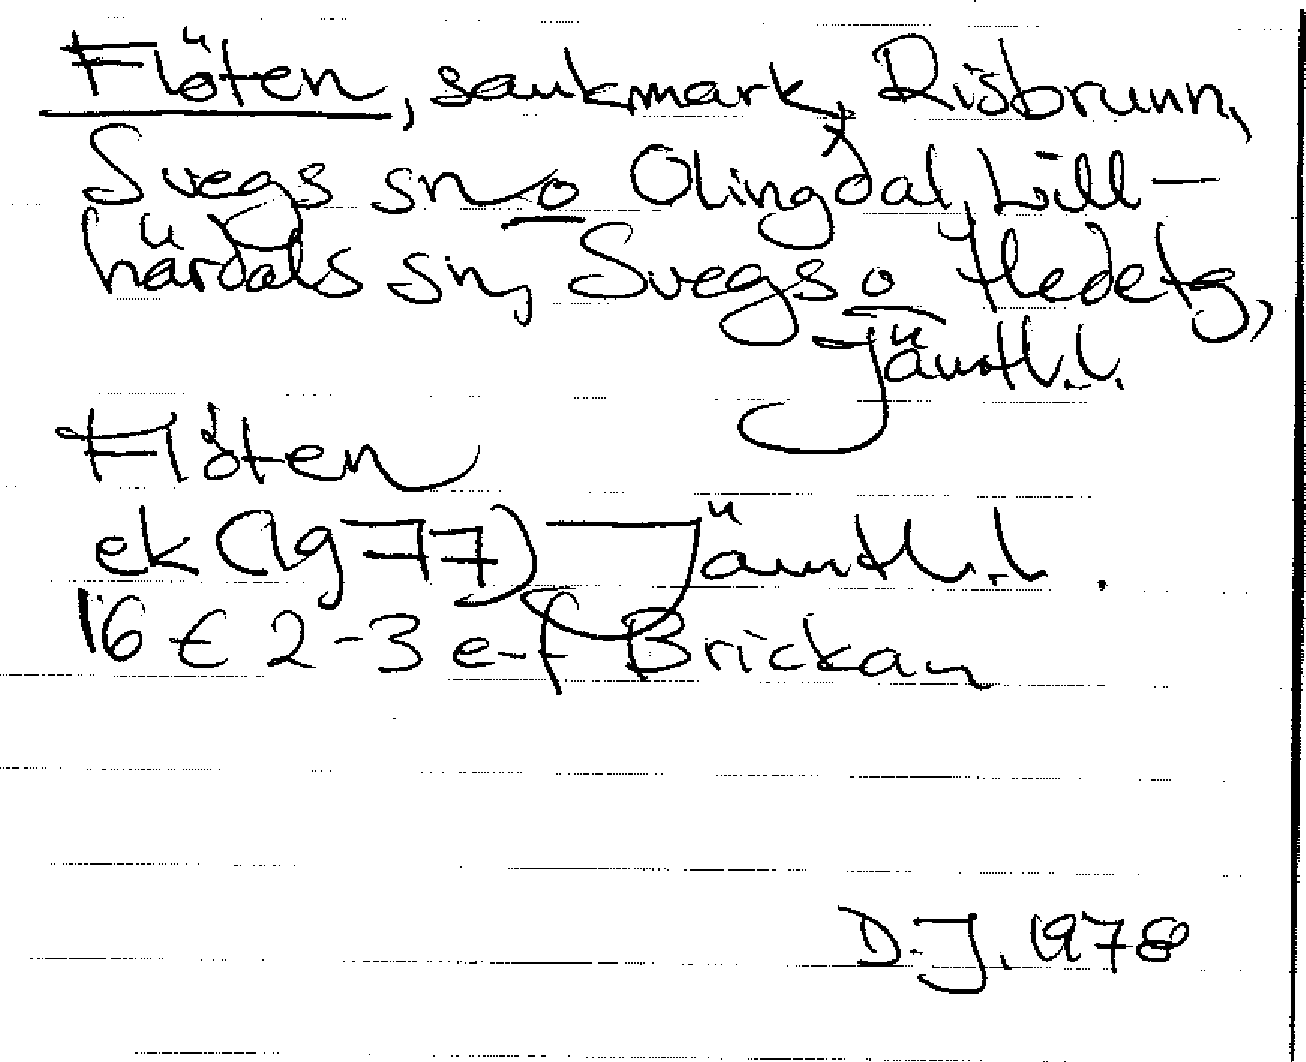 Flöten, sankmark, Risbrunn,
Svegs sn o Olingdal, Lill-
härdals sn, Svegs o Hedetg,
Jämtl.l.
Flöten
ek (1977) Jämtl.l.
16 E 2-3 e-f Brickan
D.J. 1978